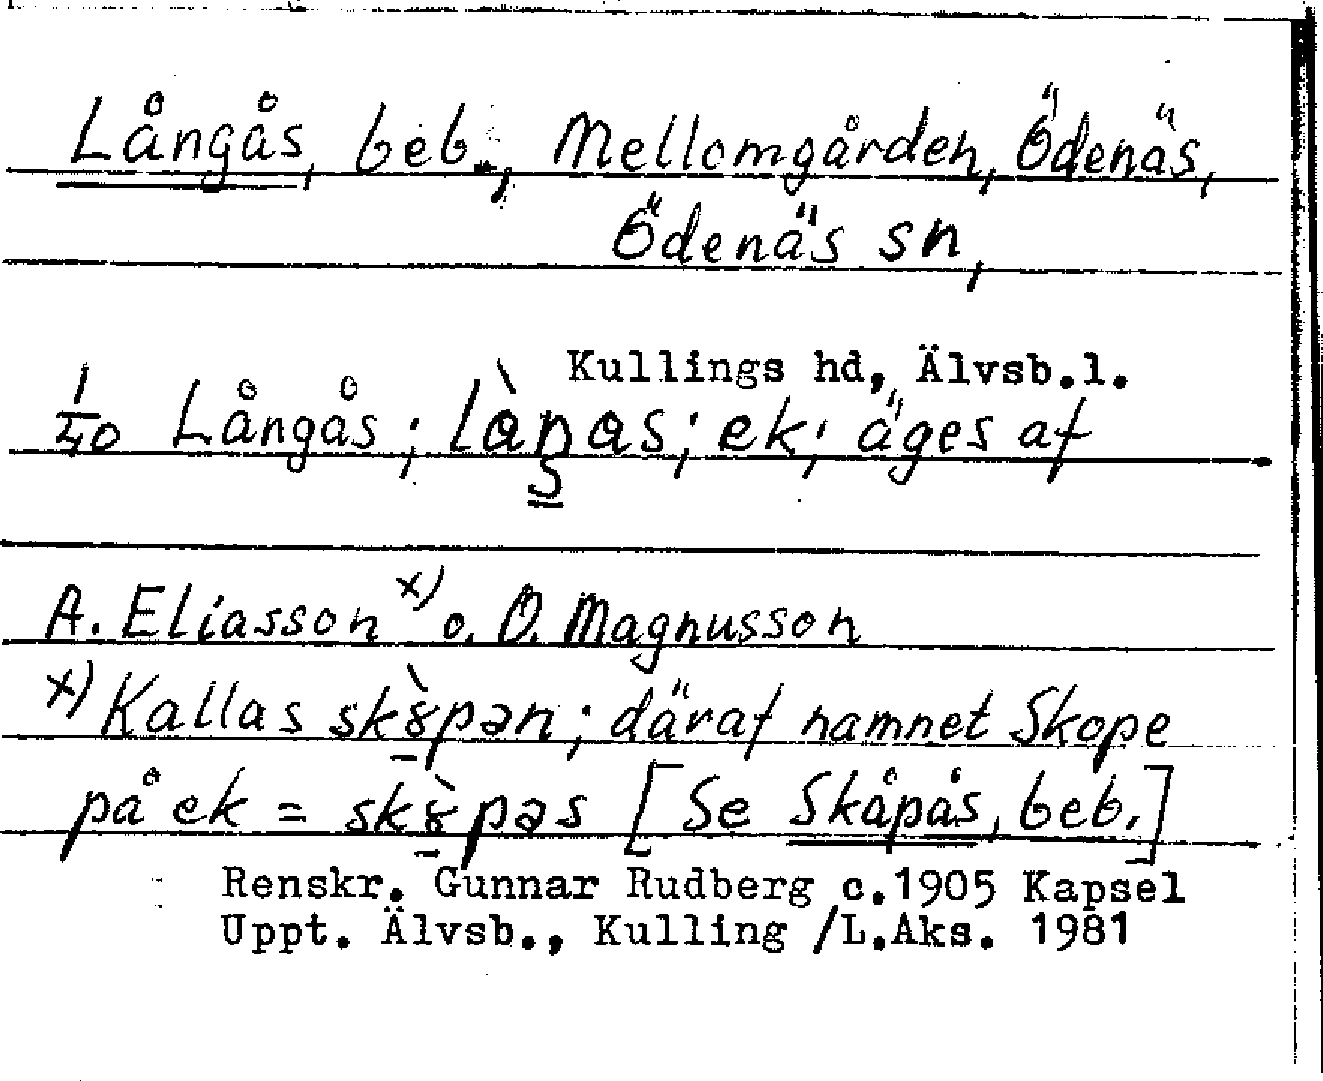 Långås, beb., Mellomgården, Ödenäs,
Ödenäs sn,
Kullings hd, Älvsb.l.
1/40 Långås; ; ek; äges af
A. Eliasson x) o. O. Magnusson
x) Kallas ; däraf namnet Skope
på ek = [Se Skåpås, beb.]
Renskr. Gunnar Rudberg c.1905 Kapsel
Uppt. Älvsb., Kulling /L.Aks. 1981